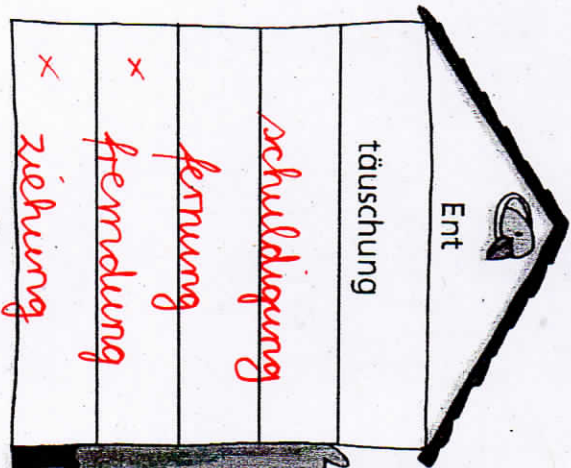 Ent
täuschung
schuldigung
fernung
× fremdung
× ziehung